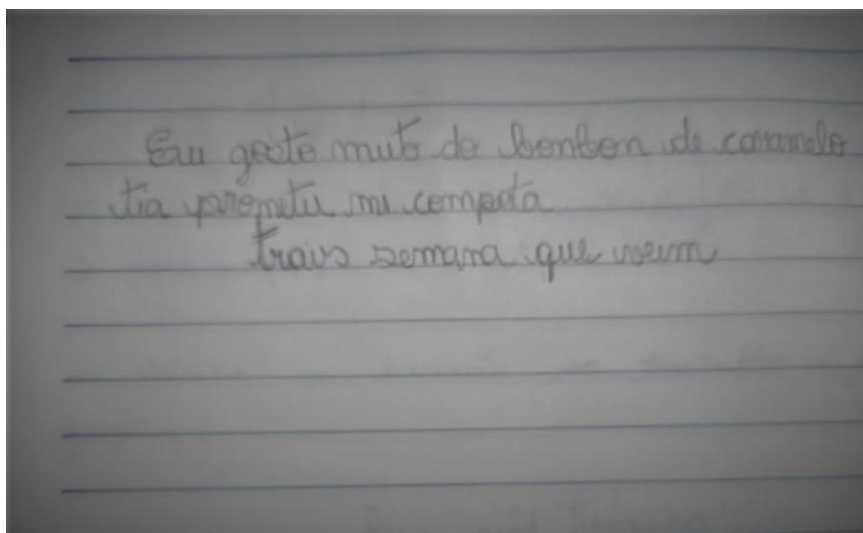 Eu goste muto do bombom de caramelo
tia prometu mi comporta
travs semana que veim